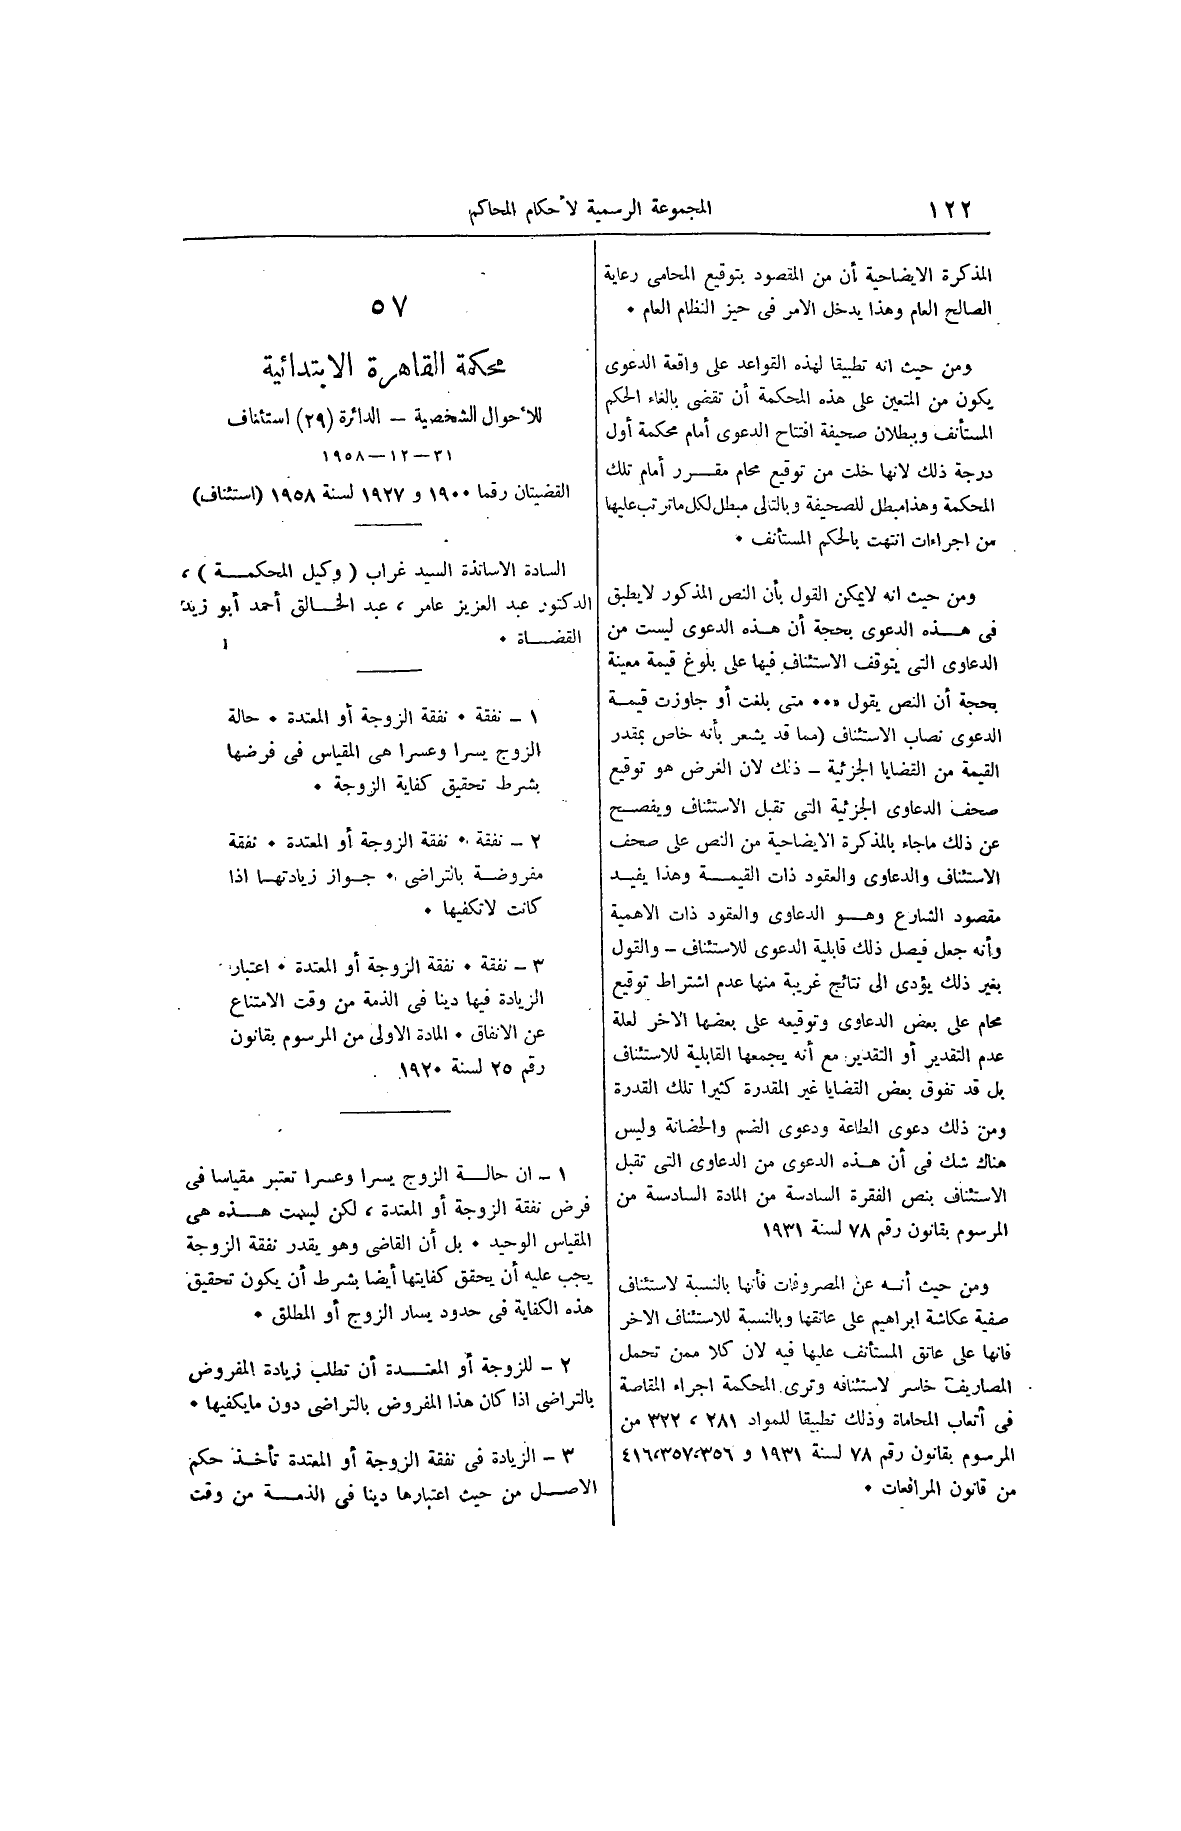 ١٢٢
المجموعة الرسمية لأحكام المحاكم
المذكرة الايضاحية أن من المقصود بتوقيع المحامى رعاية
الصالح العام وهذا يدخل الامر فى حيز النظام العام ٠
ومن حيث انه تطبيقا لهذه القواعد على واقعة الدعوى
يكون من المتعين على هذه المحكمة أن تقضى بالغاء الحكم
المستأنف وببطلان صحيفة افتتاح الدعوى أمام محكمة أول
درجة ذلك لانها خلت من توقيع محام مقـــرر أمام تلك
المحكمة وهذا مبطل للصحيفة وبالتالى مبطل لكل ماترتب عليها
من اجراءات انتهت بالحكم المستأنف ٠
ومن حيث انه لايمكن القول بأن النص المذكور لايطبق
فى هـــذه الدعوى بحجة أن هـــذه الدعوى ليست من
الدعاوى التى يتوقف الاستئناف فيها على بلوغ قيمة معينة
بحجة أن النص يقول «٠٠ متى بلغت أو جاوزت قيمـــة
الدعوى نصاب الاستئناف (مما قد يشعر بأنه خاص بمقدر
القيمة من القضايا الجزئية – ذلك لان الغرض هو توقيع
صحف الدعاوى الجزئية التى تقبل الاستئناف ويفصـــح
عن ذلك ماجاء بالمذكرة الايضاحية من النص على صحف
الاستئناف والدعاوى والعقود ذات القيمـــة وهذا يفيـــد
مقصود الشارع وهـــو الدعاوى والعقود ذات الاهمية
وأنه جعل فيصل ذلك قابلية الدعوى للاستئناف – والقول
بغير ذلك يؤدى الى نتائج غريبة منها عدم اشتراط توقيع
محام على بعض الدعاوى وتوقيعه على بعضها الاخر لعلة
عدم التقدير أو التقدير مع أنه يجمعها القابلية للاستئناف
بل قد تفوق بعض القضايا غير المقدرة كثيرا تلك القدرة
ومن ذلك دعوى الطاعة ودعوى الضم والحضانة وليس
هناك شك فى أن هـــذه الدعوى من الدعاوى التى تقبل
الاستئناف بنص الفقرة السادسة من المادة السادسة من
المرسوم بقانون رقم ٧٨ لسنة ١٩٣١
ومن حيث أنـــه عن المصروفات فأنها بالنسبة لاستئناف
صفية عكاشة ابراهيم على عاتقها وبالنسبة للاستئناف الاخر
فانها على عاتق المستأنف عليها فيه لان كلا ممن تحمل
المصاريف خاسر لاستئنافه وترى المحكمة اجراء المقاصة
فى أتعاب المحاماة وذلك تطبيقا للمواد ٢٨١ ، ٣٢٢ من
المرسوم بقانون رقم ٧٨ لسنة ١٩٣١ و ٣٥٦،٣٥٧،٤١٦
من قانون المرافعات ٠
٥٧
محكمة القاهرة الابتدائية
للأحوال الشخصية – الدائرة (٢٩) استئناف
٣١–١٢–١٩٥٨
القضيتان رقما ١٩٠٠ و ١٩٢٧ لسنة ١٩٥٨ (استئناف)
السادة الاساتذة السيد غراب ( وكيل المحكمـــة ) ،
الدكتور عبد العزيز عامر ، عبد الخـــالق أحمد أبو زيد
القضـــاة ٠
١ – نفقة ٠ نفقة الزوجة أو المعتدة ٠ حالة
الزوج يسرا وعسرا هى المقياس فى فرضها
بشرط تحقيق كفاية الزوجة ٠
٢ – نفقة ٠ نفقة الزوجة أو المعتدة ٠ نفقة
مفروضـــة بالتراضى ٠ جـــواز زيادتهـــا اذا
كانت لاتكفيها ٠
٣ – نفقة ٠ نفقة الزوجة أو المعتدة ٠ اعتبار
الزيادة فيها دينا فى الذمة من وقت الامتناع
عن الانفاق ٠ المادة الاولى من المرسوم بقانون
رقم ٢٥ لسنة ١٩٢٠
١ – ان حالـــة الزوج يسرا وعسرا تعتبر مقياسا فى
فرض نفقة الزوجة أو المعتدة ، لكن ليست هـــذه هى
المقياس الوحيد ٠ بل أن القاضى وهو يقدر نفقة الزوجة
يجب عليه أن يحقق كفايتها أيضا بشرط أن يكون تحقيق
هذه الكفاية فى حدود يسار الزوج أو المطلق ٠
٢ – للزوجة أو المعتـــدة أن تطلب زيادة المفروض
بالتراضى اذا كان هذا المفروض بالتراضى دون مايكفيها ٠
٣ – الزيادة فى نفقة الزوجة أو المعتدة تأخـــذ حكم
الاصـــل من حيث اعتبارها دينا فى الذمـــة من وقت